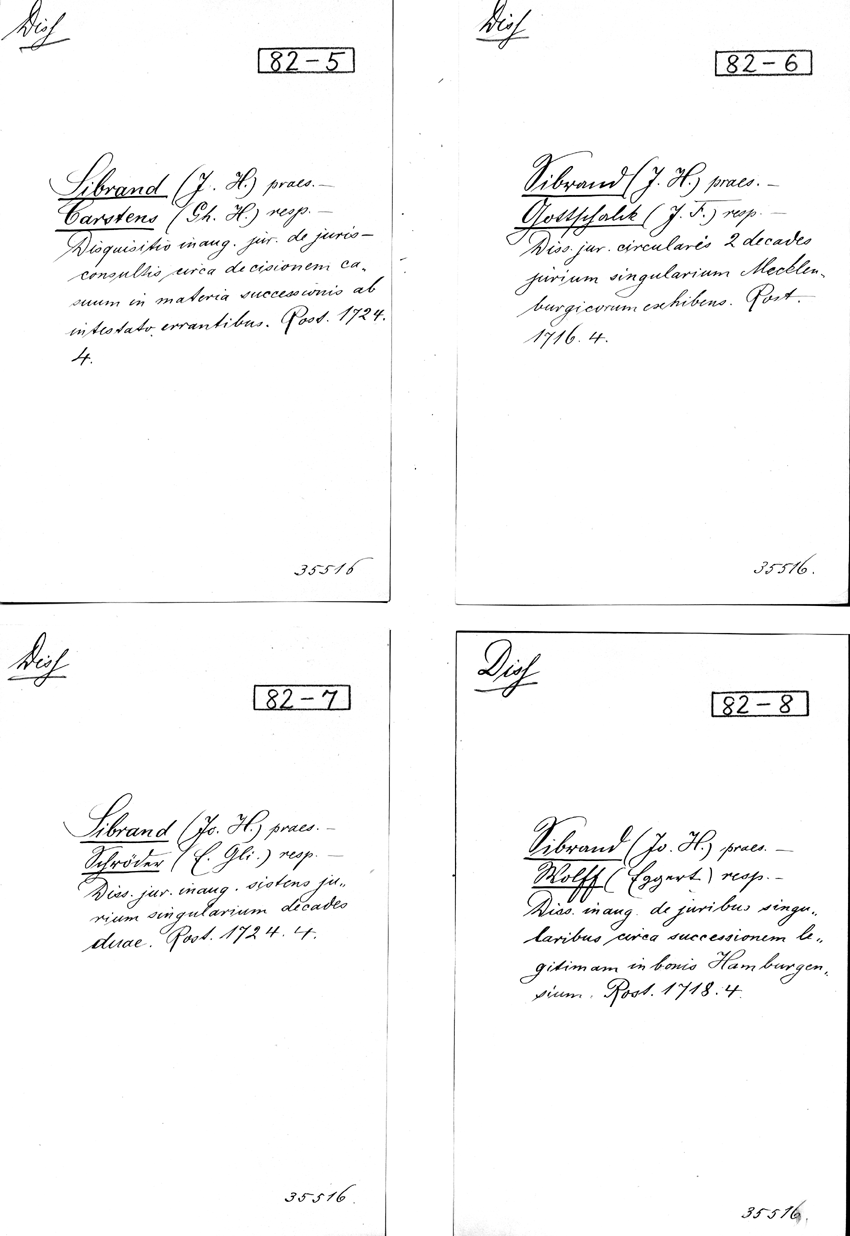 Diss
82-5
Sibrand (J. H.) praes. —
Carstens (Ch. H.) resp. —
Disquisitio inaug. jur. de juris-
consultis circa decisionem ca-
suum in materia successionis ab
intestato errantibus. Rost. 1724.
4.
35516
Diss
82-6
Sibrand (J. H.) praes. —
Gottschalk (J. F.) resp. —
Diss. jur. circularis 2 decades
jurium singularium Mecklen-
burgicorum exhibens. Rost.
1716. 4.
35516.
Diss
82-7
Sibrand (Jo. H.) praes. —
Schröder (E. Gli.) resp. —
Diss. jur. inaug. sistens ju-
rium singularium decades
duae. Rost. 1724. 4.
35516.
Diss
82-8
Sibrand (Jo. H.) praes. —
Wolff (Eggert) resp. —
Diss. inaug. de juribus singu-
laribus circa successionem le-
gitimam in bonis Hamburgen-
sium. Rost. 1718. 4.
35516.